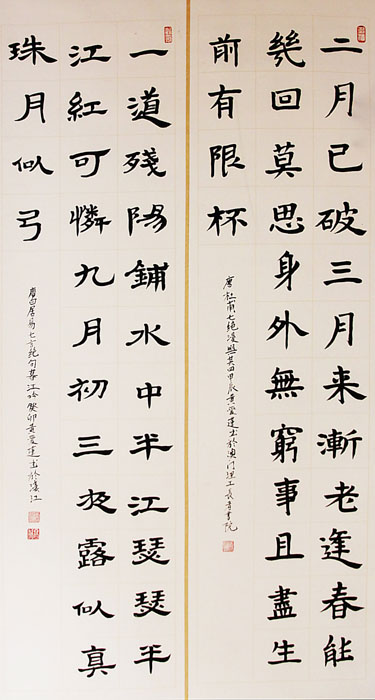 二月已破三月来漸老逢春能
幾回莫思身外無窮事且盡生
前有限杯
唐杜甫七絕漫興其四甲辰黃愛蓮書於澳門理工長者書院
一道殘陽鋪水中半江瑟瑟半
江紅可憐九月初三夜露似真
珠月似弓
唐白居易七言絕句暮江吟癸卯黃愛蓮書於濠江